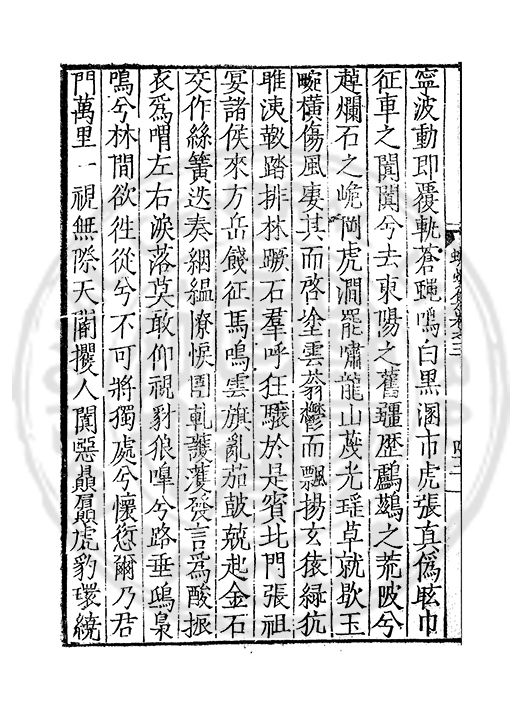 寧波動即覆軌蒼蠅鳴白黑溷市虎張真僞眩巾
征車之闐闐兮去東陽之舊疆歷鸕鷀之荒陂兮
越爛石之峗岡虎澗羆嘯龍山茂光瑶草就歇玉
畹橫傷風凄其而啓塗雲蓊鬱而飄揚玄猿緑狖
睢洟報踏排林蹶石羣呼狂駭於是賓北門張祖
宴諸侯來方岳餞征馬鳴雲旗亂茄鼓兢起金石
交作絲簧迭奏絪縕憀悷剛軋頀濩發言爲酸振
衣爲喟左右淚落莫敢仰視豺狼嘷兮路垂鴟梟
鳴兮林間欲徃從兮不可將獨處兮懷愆爾乃君
門萬里一視無際天關攫人闔惡贔屭虎豹環繞